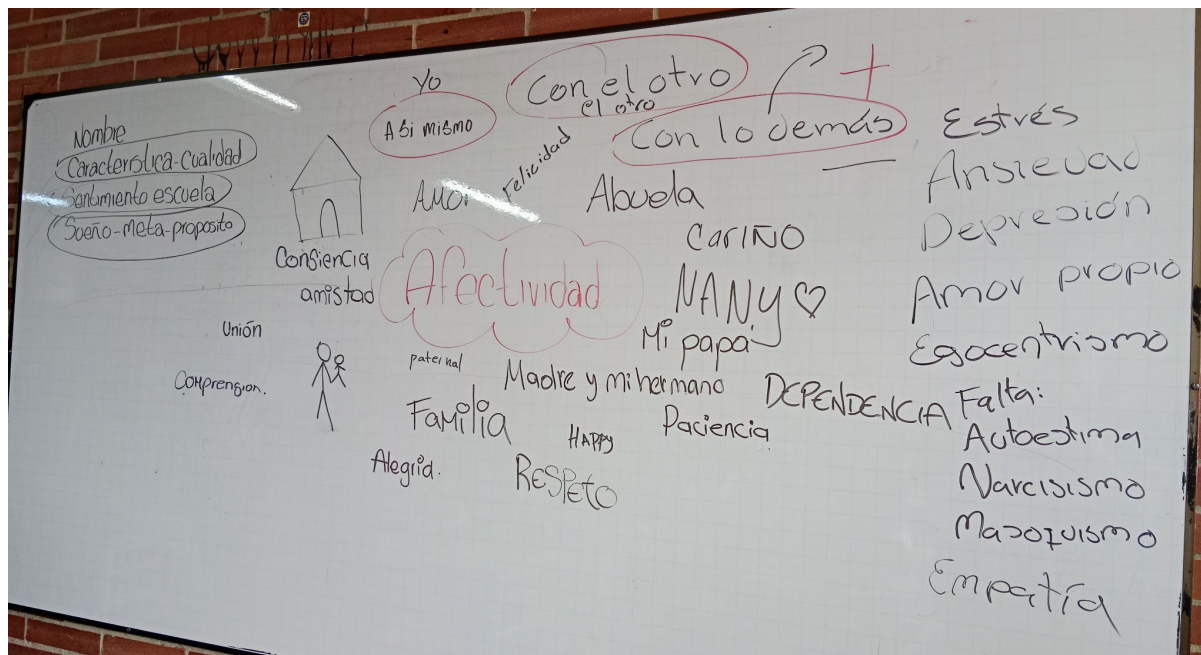 Nombre
Característica-cualidad
Sentimiento escuela
Sueño-meta-proposito
Yo
A Si mismo
Con el otro
el otro
Con lo demás
+
AMOR
Felicidad
Abuela
CARIÑO
Consiencia
amistad
Afectividad
NANY ♡
Mi papá
Unión
Comprension.
paternal
Madre y mi hermano
Familia
HAPPY
Paciencia
DEPENDENCIA
Alegria.
RESPETO
Estrés
Ansievad
Depresión
Amor propio
Egocentrismo
Falta:
Autoestima
Narcisismo
Masoquismo
Empatía